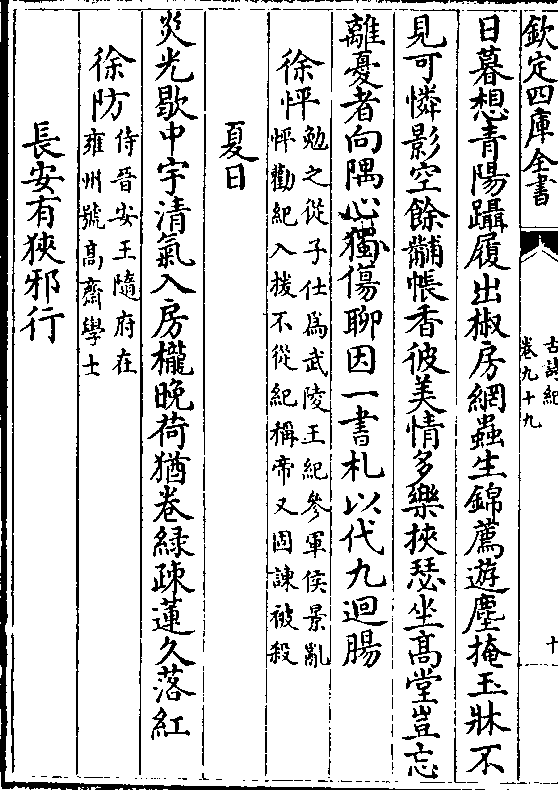 欽定四庫全書
古詩紀
卷九十九
十
日暮想青陽躡履出椒房網蟲生錦薦遊塵掩玉牀不
見可憐影空餘黼帳香彼美情多樂挾瑟坐高堂豈忘
離憂者向隅心獨傷聊因一書札以代九迴腸
徐怦
勉之從子仕爲武陵王紀參軍侯景亂
怦勸紀入援不從紀稱帝又固諫被殺
夏日
炎光歇中宇清氣入房櫳晚荷猶卷緑疎蓮久落紅
徐防
侍晉安王隨府在
雍州號髙齋學士
長安有狹邪行